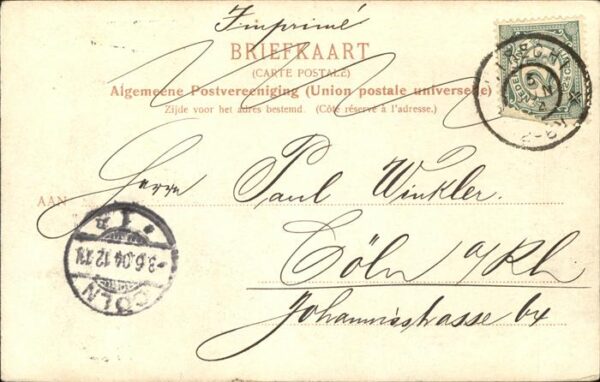 Imprimé
BRIEFKAART
(CARTE POSTALE)
Algemeene Postvereeniging (Union postale universelle)
Zijde voor het adres bestemd. (Côté réservé à l'adresse.)
AAN
Herrn Paul Winkler.
Cöln a/Rh
Johannisstrasse 64
CÖLN
-3.6.04.12-1N
* 1 *